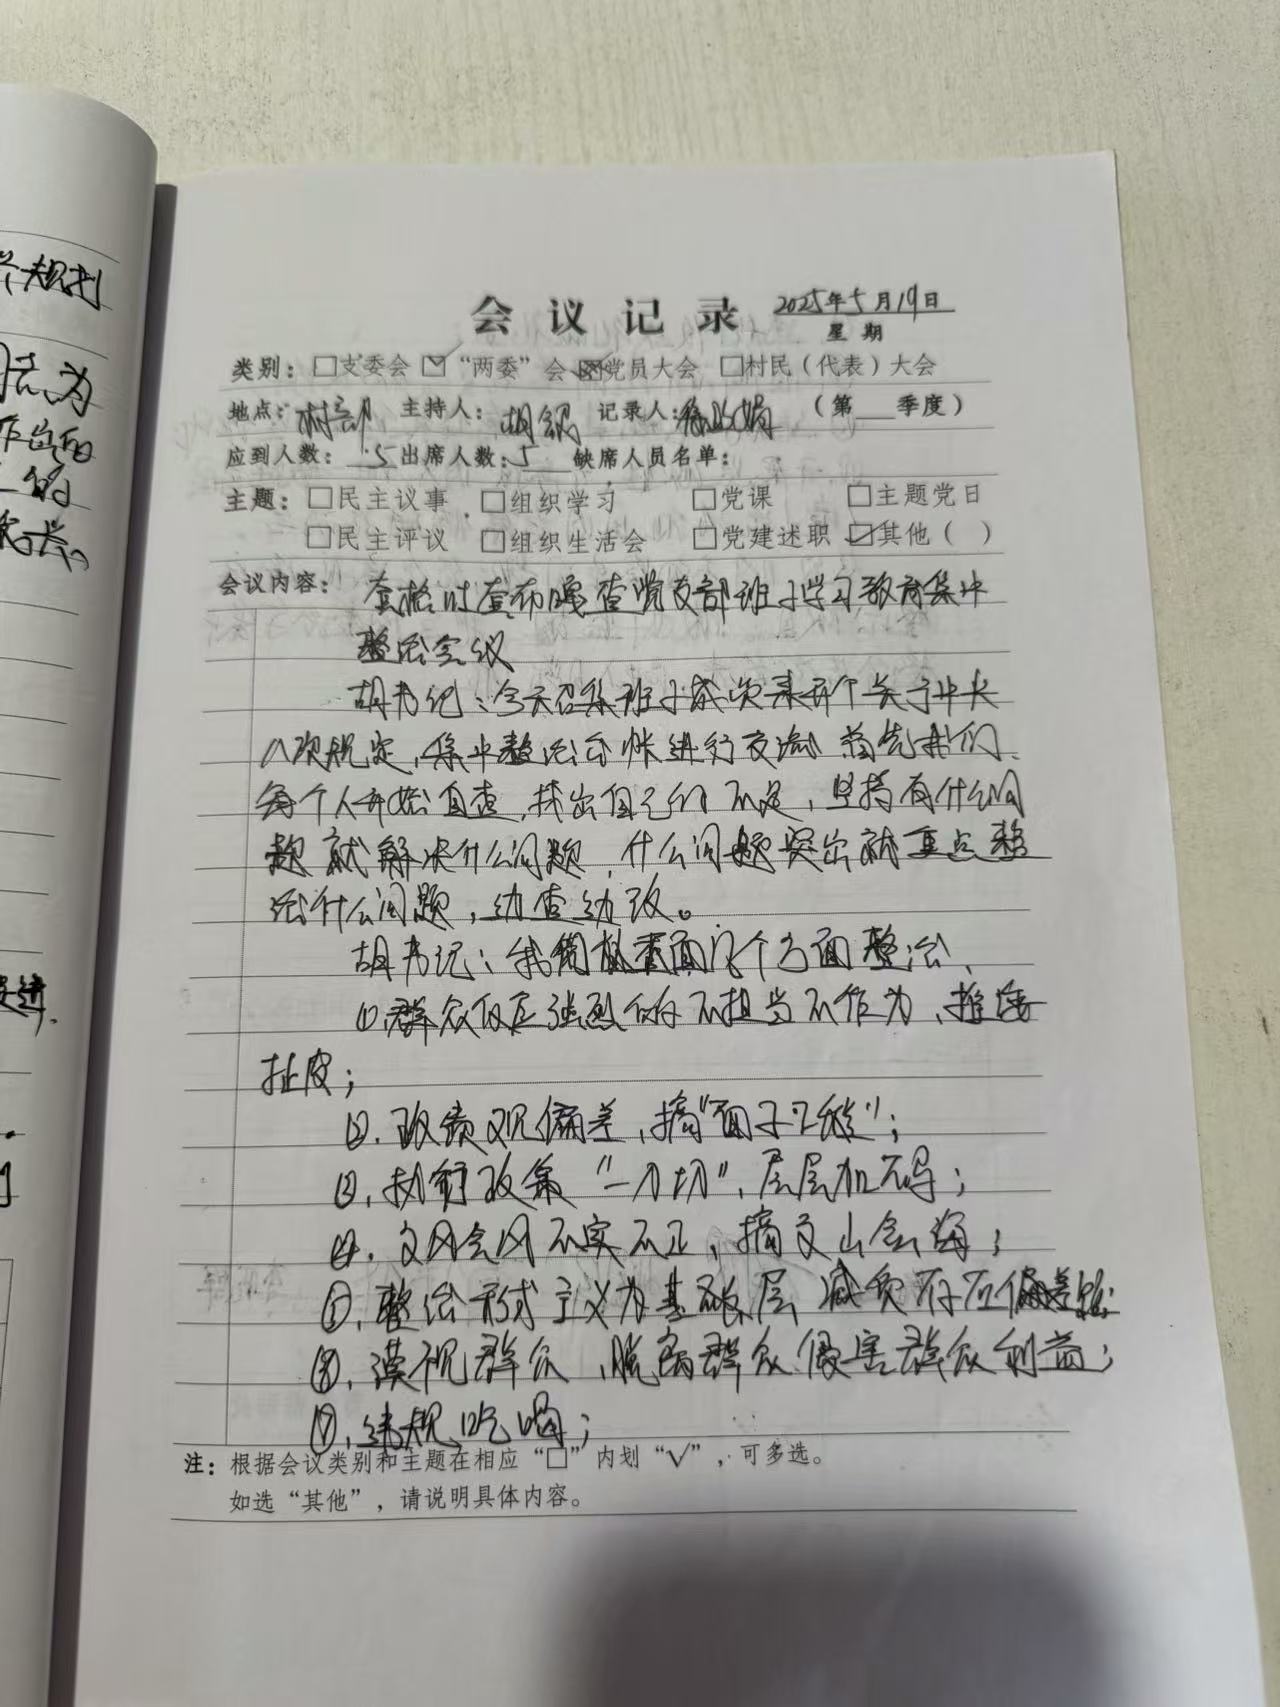 会议记录 2025年5月19日
星期
类别：□支委会 ☑“两委”会 党员大会 □村民（代表）大会
地点：村部 主持人：胡 记录人： （第 季度）
应到人数：5 出席人数：5 缺席人员名单：
主题：□民主议事 □组织学习 □党课 □主题党日
□民主评议 □组织生活会 □党建述职 ☑其他（ ）
会议内容： 查 党支部班子学习教育集中
整治会议
胡书记：今天召集班子成员来开个关于中央
八项规定，集中整治台帐进行交流，首先我们
每个人开始自查，找出自己的不足，坚持有什么问
题就解决什么问题，什么问题突出就重点整
治什么问题，边查边改。
胡书记：我们 个方面整治、
①群众反应强烈的不担当不作为、推诿
扯皮；
②、政绩观偏差，搞“面子工程”；
③、执行政策“一刀切”、层层加码；
④、文风会风不实不正，搞文山会海；
⑤、整治形式主义为基层减负存在偏差；
⑥、漠视群众、脱离群众、侵害群众利益；
⑦、违规吃喝；
注：根据会议类别和主题在相应“□”内划“√”，可多选。
如选“其他”，请说明具体内容。
规划
为
的